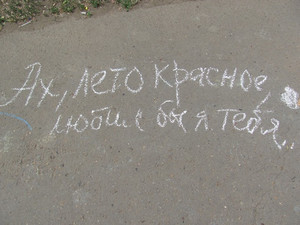 Ах, лето красное,
любил бы я тебя..